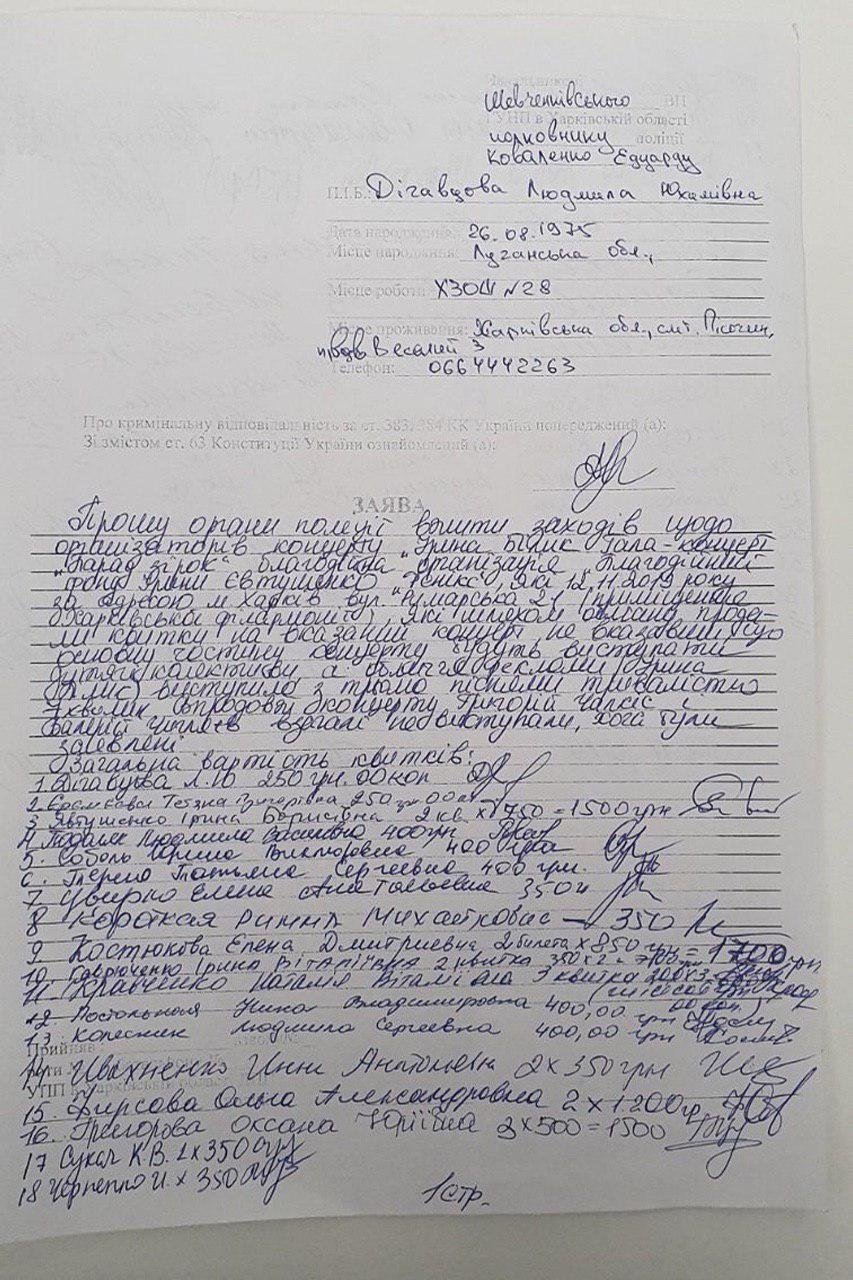 Начальнику
Шевченківського ВП
ГУНП в Харківській області
полковнику поліції
Коваленко Едуарду
П.І.Б.: Дігавцова Людмила Юхимівна
Дата народження: 26.08.1975
Місце народження: Луганська обл.,
Місце роботи ХЗОШ №28
Місце проживання: Харківська обл., смт. Пісочин,
Веселий 3
Телефон: 0664442263
Про кримінальну відповідальність за ст. 383, 384 КК України попереджений (а):
Зі змістом ст. 63 Конституції України ознайомлений (а):
ЗАЯВА
Прошу органи поліції вжити заходів щодо
організаторів концерту „Ірина Білик Гала-концерт
„Парад зірок" благодійна організація „Благодійний
фонд Ірини Євтушенко „Фенікс", які 12.11.2019 року
за адресою м. Харків вул. Римарська 21 (приміщення
Харківської філармонії), які шляхом обману прода-
ли квитки на вказаний концерт не вказавши що
основну частину концерту будуть виступати
дитячі колективи а
виступила з трьома піснями тривалістю
хвилин впродовж концерту Григорій Чапкіс і
Валерій взагалі не виступали, хоча були
заявлені.
Загальна вартість квитків:
1. Дігавцова Л.Ю 250 грн. 00 коп
2. Тетяна Григорівна 250 грн 00 коп
3. Євтушенко Ірина Борисівна 2 кв. х 750 = 1500 грн
4. Людмила Василівна 400 грн
5. Соболь Ирина Викторовна 400
6. Татьяна Сергеевна 400 грн.
7. Елена Анатольевна 350
8 Короткая Римма Михайловна – 350
9 Костюкова Елена Дмитриевна 2 билета х 850 грн = 1700 грн
10 Гаврюченко Ірина Віталіївна 2 квитка 350х2 = 700
11 Кравченко Наталія Віталіївна 3 квитка 200х3
12. Постольная Нина Владимировна 400,00 грн
13. Колесник Людмила Сергеевна 400,00 грн
Прийняв
14 Ивахненко Инна Анатольевна 2х350 грн
УПП в Харківській області
15. Фирсова Ольга Александровна 2 х 1200 гр
16. Григорова Оксана Юріївна 3х500 = 1500
17 Сукач К.В. 2х350
18 И. х 350
1 стр.